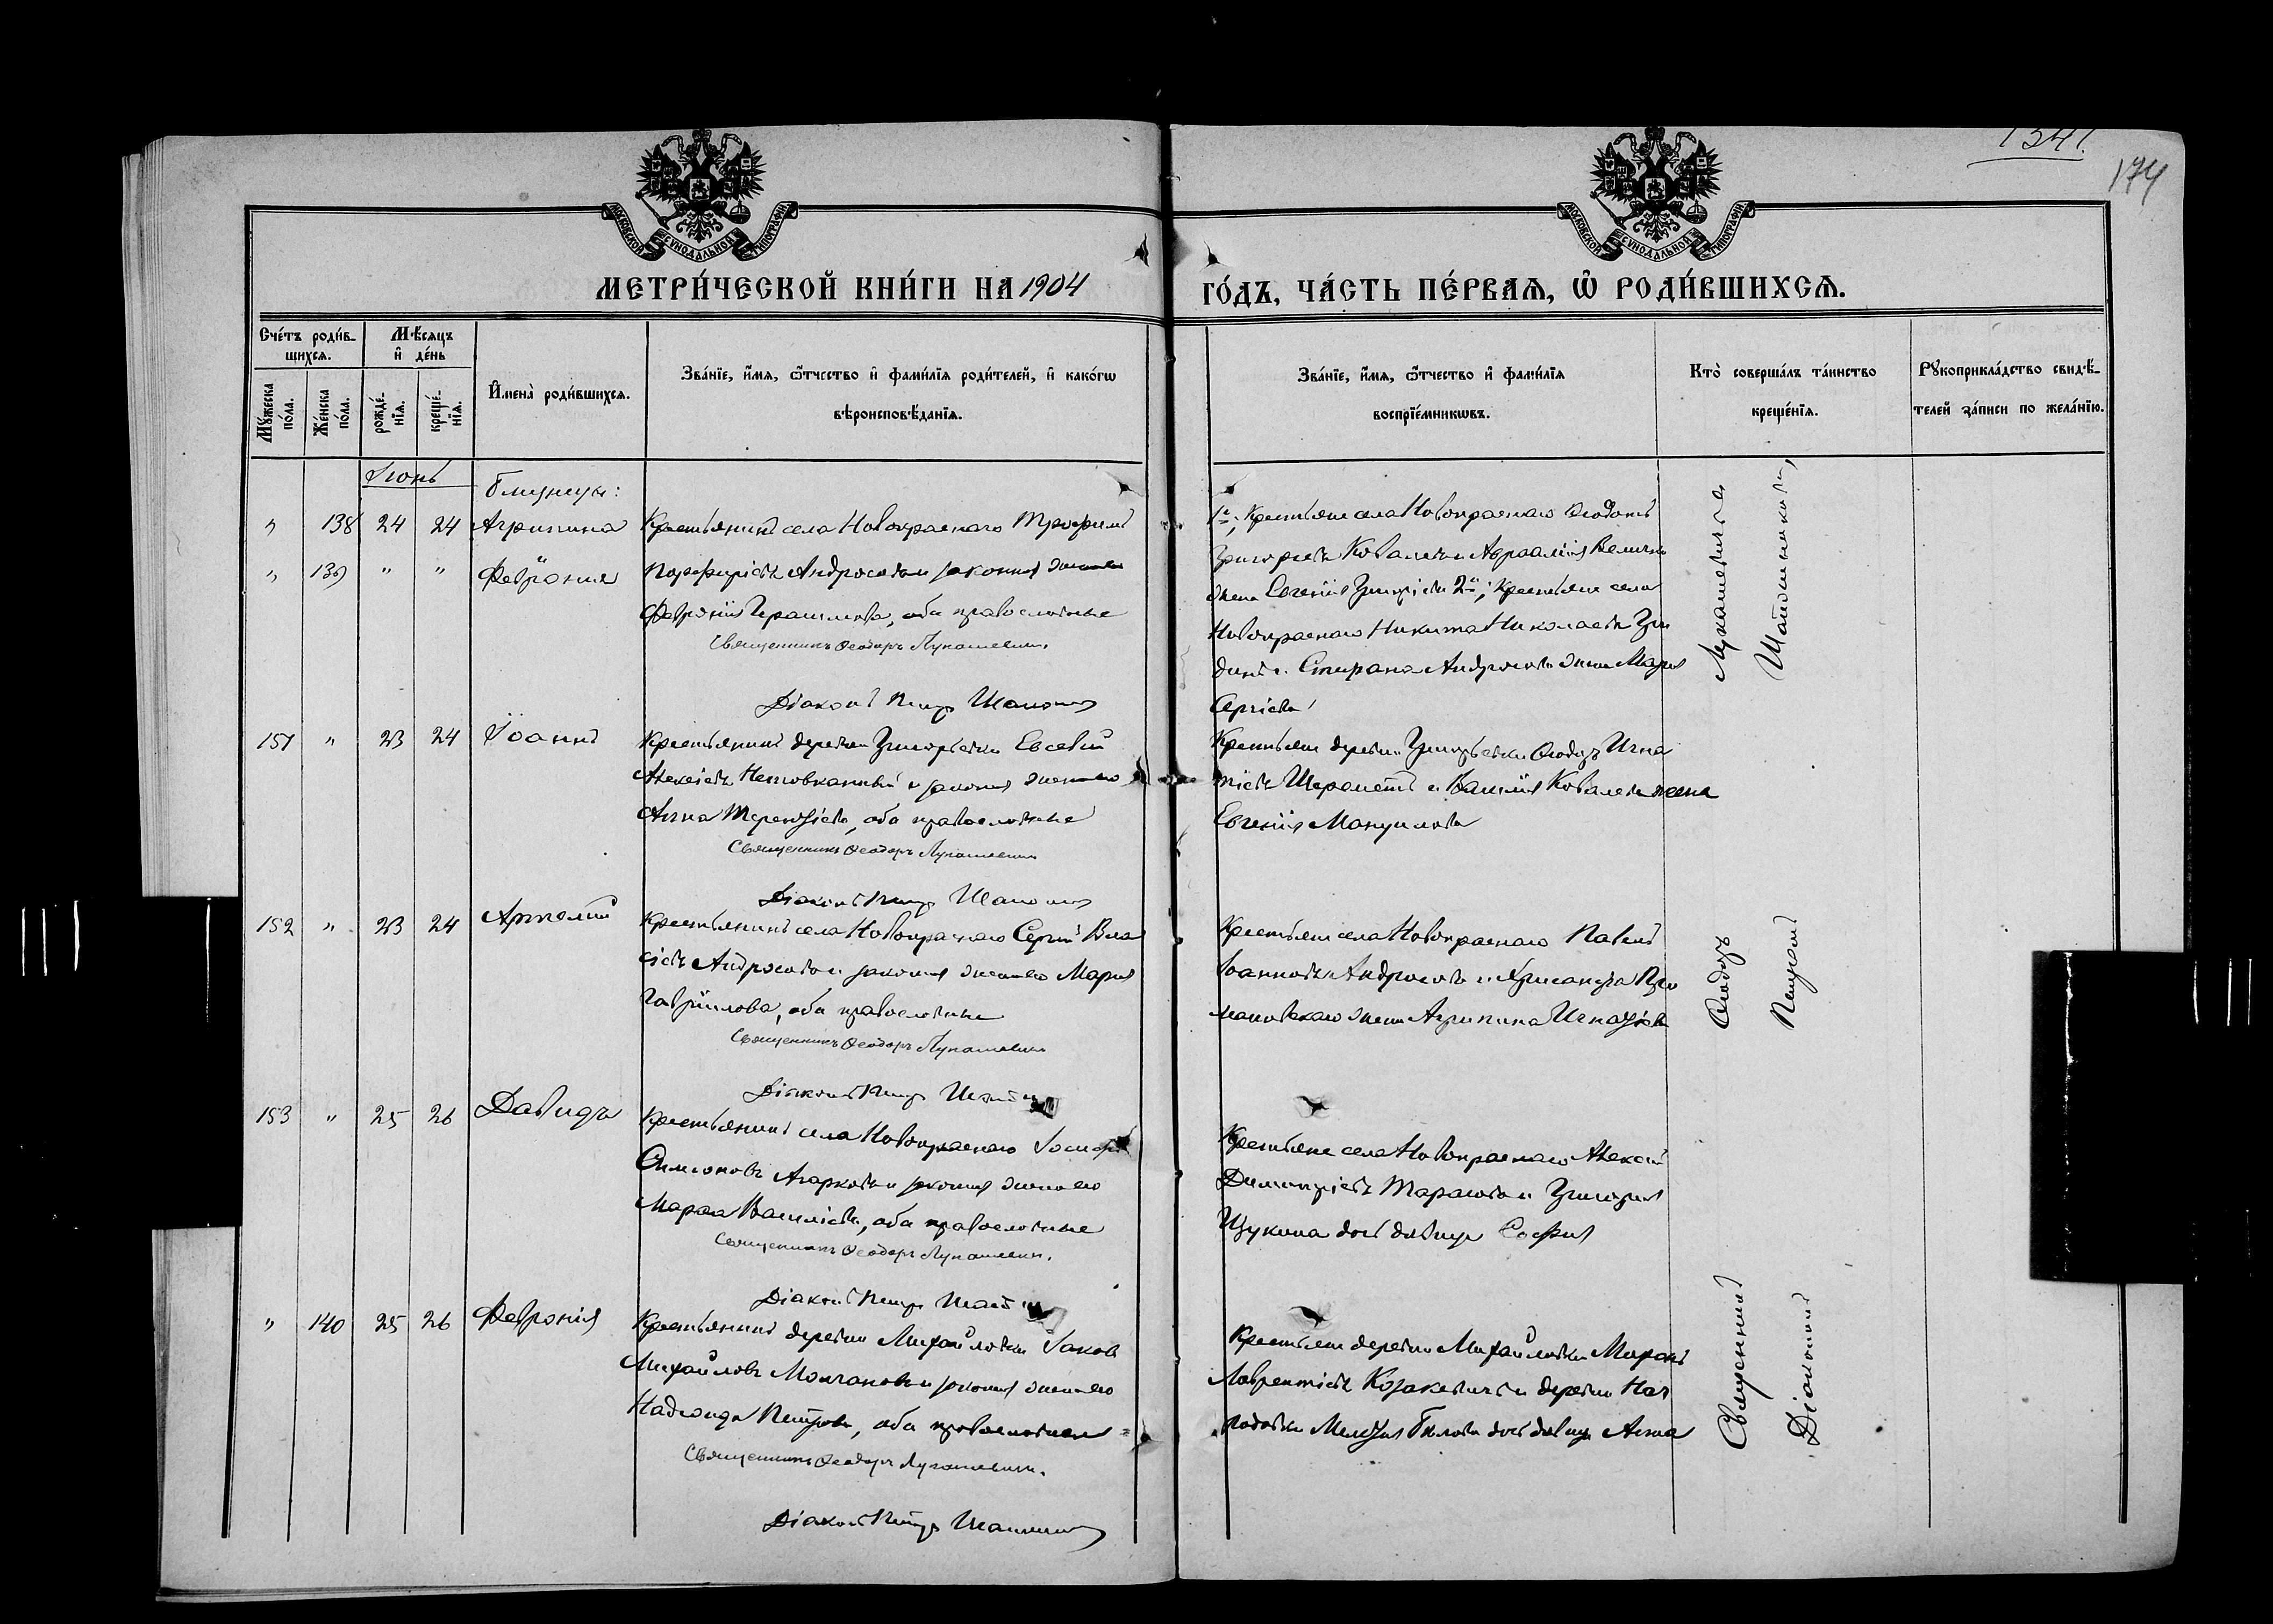 1341.
174
МОСКОВСКОЙ СУНОДАЛЬНОЙ ТИПОГРАФІИ
МОСКОВСКОЙ СУНОДАЛЬНОЙ ТИПОГРАФІИ
МЕТРИ́ЧЕСКОЙ КНИ́ГИ НА 1904
ГО́ДЪ, ЧА́СТЬ ПЕ́РВАЯ, Ѡ҆ РОДИ́ВШИХСЯ.
Сче́тъ роди́в-
щихся.
Мѣ́сяцъ
и҆ де́нь
Мꙋ́жеска по́ла.
Же́нска по́ла.
рожде́-
нїя.
креще́-
нїя.
И҆мена̀ роди́вшихся.
Зва́нїе, и҆́мя, ѻ҆́тчество и҆ фами́лїя роди́телей, и҆ како́гѡ
вѣроисповѣ́данїя.
Зва́нїе, и҆́мя, ѻ҆́тчество и҆ фами́лїя
воспрїе́мникѡвъ.
Кто̀ соверша́лъ та́инство
креще́нїя.
Рꙋкоприкла́дство свидѣ́-
телей за́писи по жела́нїю.
Іюнь
Близнецы:
" 138 24 24 Агрипина
" 139 " " Феврония
Крестьянинъ села Новокраснаго Трофимъ
Порфиріевъ Андросовъ и законная жена его
Феврония Герасимова, оба православные
Священникъ Ѳеодоръ Лукашевичъ.
Діаконъ Петръ
1е; Крестьяне села Новокраснаго
Григорьевъ Ковалевъ и
жена Евгенія Григоріева 2й; Крестьяне села
Новокраснаго Никита Николаевъ
Андросова жена Марія
Сергіева
151 " 23 24 Іоаннъ
Крестьянинъ деревни Григорьевки Евсевій
Алексіевъ и законная жена его
Анна Терентіева, оба православные
Священникъ Ѳеодоръ Лукашевичъ
Діаконъ Петръ
Крестьяне деревни Григорьевки Ѳеодоръ Игна
тіевъ Шереметъ и Василія Ковалева жена
Евгенія Мануилова
152 " 23 24 Артемій
Крестьянинъ села Новокраснаго Сергій Вла
сіевъ Андросовъ и законная жена его Марія
Гавріилова, оба православные
Священникъ Ѳеодоръ Лукашевичъ
Діаконъ Петръ
Крестьяне села Новокраснаго Павелъ
Іоанновъ Андросовъ и
жена Агрипина Игнатіева
153 " 25 26 Давидъ
Крестьянинъ села Новокраснаго Іосифъ
Симеоновъ Агарковъ и законная жена его
Марѳа Василіева, оба православные
Священникъ Ѳеодоръ Лукашевичъ.
Діаконъ Петръ
Крестьяне села Новокраснаго Алексій
Димитріевъ Тарасовъ и Григорія
Щукина дочь дѣвица Софія
" 140 25 26 Февронія
Крестьянинъ деревни Михайловки Іаковъ
Михайловъ Молчановъ и законная жена его
Надежда Петрова, оба православные
Священникъ Ѳеодоръ Лукашевичъ.
Діаконъ Петръ
Крестьяне деревни Михайловки Миронъ
Лаврентіевъ Козакевичъ и деревни
дочь дѣвица Анна
Священникъ Ѳеодоръ Лукашевичъ и
Діаконъ